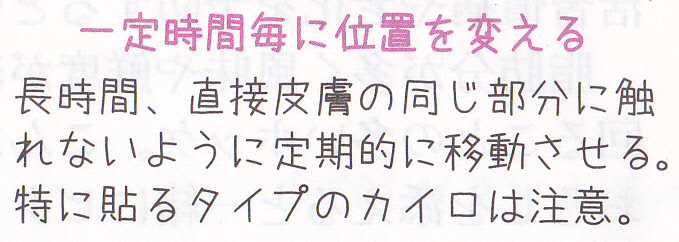 一定時間毎に位置を変える
長時間、直接皮膚の同じ部分に触
れないように定期的に移動させる。
特に貼るタイプのカイロは注意。